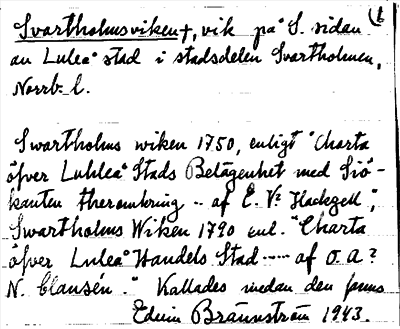 Svartholmsviken†, vik på S. sidan (1
av Luleå stad i stadsdelen Svartholmen,
Norrb. l.
Swartholms wiken 1750, enligt "Charta
öfver Luhleå Stads Belägenhet med Siö-
kanten theromkring -- af E. Vs Hackzell",
Swartholms Wiken 1790 enl. "Charta
öfver Luleå Handels Stad ---- af O. A?
N. Clausén." Kallades medan den fanns
Edvin Brännström 1943.